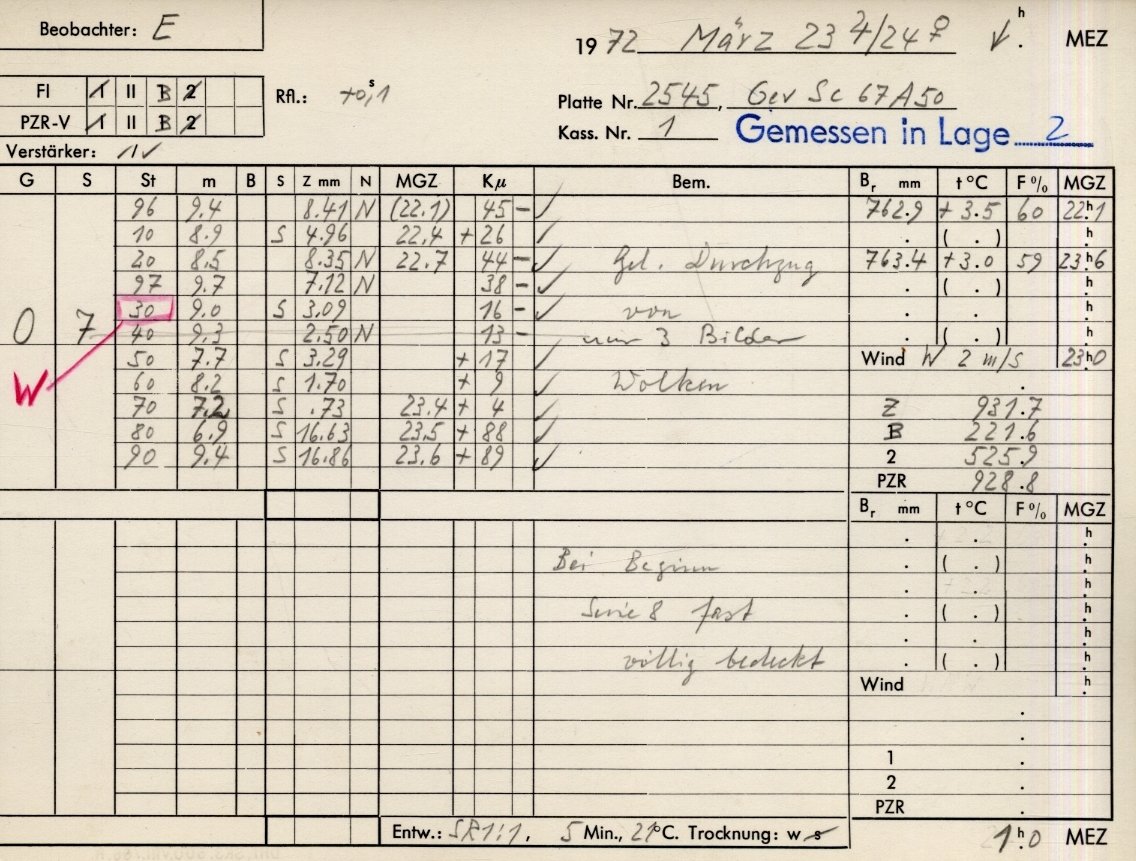 Beobachter: E
1972 März 23 ♃/24 ♀ h. MEZ
FI 1 II B 2
PZR-V 1 II B 2
Rfl.: +0,ˢ1
Platte Nr. 2545, Gev Sc 67A50
Kass. Nr. 1 Gemessen in Lage 2
Verstärker:
G S St m B S Z mm N MGZ Kμ Bem. Bᵣ mm t°C F% MGZ
96 9.4 8.41 N (22.1) 45 – ✓ 762.9 +3.5 60 22ʰ.1
10 8.9 S 4.96 22.4 +26 ✓ . ( . ) .ʰ
20 8.5 8.35 N 22.7 44 – ✓ Gel. Durchzug 763.4 +3.0 59 23ʰ.6
97 9.7 7.12 N 38 – ✓ . ( . ) .ʰ
30 9.0 S 3.09 16 – ✓ von . . .ʰ
0 7 40 9.3 2.50 N 13 – nur 3 Bilder . ( . ) .ʰ
50 7.7 S 3.29 +17 ✓ Wind W 2 m/s 23ʰ.0
W 60 8.2 S 1.70 +9 ✓ Wolken .
70 7.2 S .73 23.4 +4 ✓ Z 931.7
80 6.9 S 16.63 23.5 +88 ✓ B 221.6
90 9.4 S 16.86 23.6 +89 ✓ 2 525.9
PZR 928.8
Bᵣ mm t°C F% MGZ
. . .ʰ
Bei Beginn . ( . ) .ʰ
. . .ʰ
Serie 8 fast . ( . ) .ʰ
. . .ʰ
völlig bedeckt . ( . ) .ʰ
Wind .ʰ
.
.
1 .
2 .
PZR .
Entw.: SR1:1, 5 Min., 21°C. Trocknung: w s 1ʰ.0 MEZ